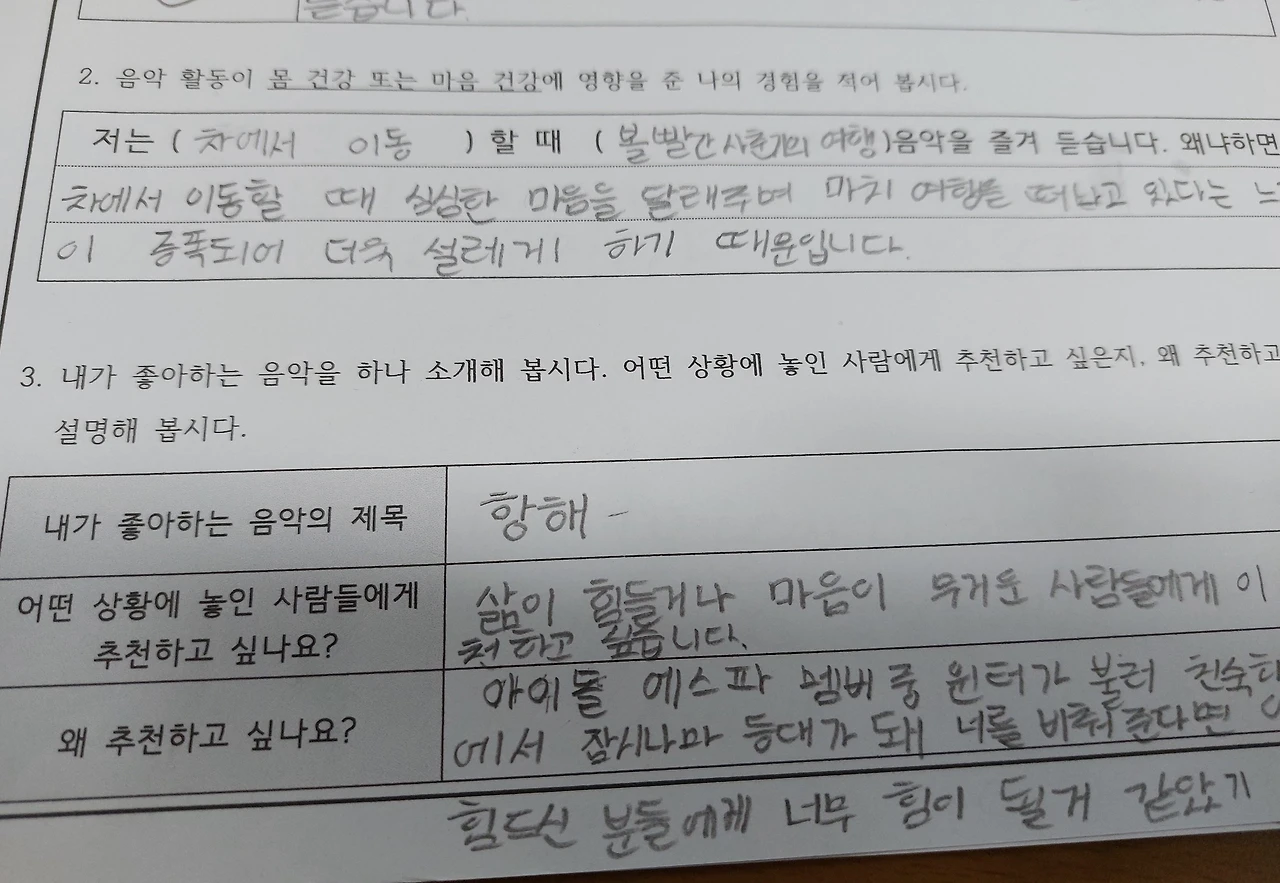 듣습니다.
2. 음악 활동이 몸 건강 또는 마음 건강에 영향을 준 나의 경험을 적어 봅시다.
저는 ( 차에서 이동 ) 할 때 ( 볼빨간사춘기의 여행)음악을 즐겨 듣습니다. 왜냐하면
차에서 이동할 때 심심한 마음을 달래주며 마치 여행을 떠나고 있다는 느
이 증폭되어 더욱 설레게 하기 때문입니다.
3. 내가 좋아하는 음악을 하나 소개해 봅시다. 어떤 상황에 놓인 사람에게 추천하고 싶은지, 왜 추천하고
설명해 봅시다.
내가 좋아하는 음악의 제목
항해 -
어떤 상황에 놓인 사람들에게
추천하고 싶나요?
삶이 힘들거나 마음이 무거운 사람들에게 이
천하고 싶습니다.
왜 추천하고 싶나요?
아이돌 에스파 멤버중 윈터가 불러 친숙하
에서 잠시나마 등대가 돼 너를 비춰준다면
힘드신 분들에게 너무 힘이 될거 같았기